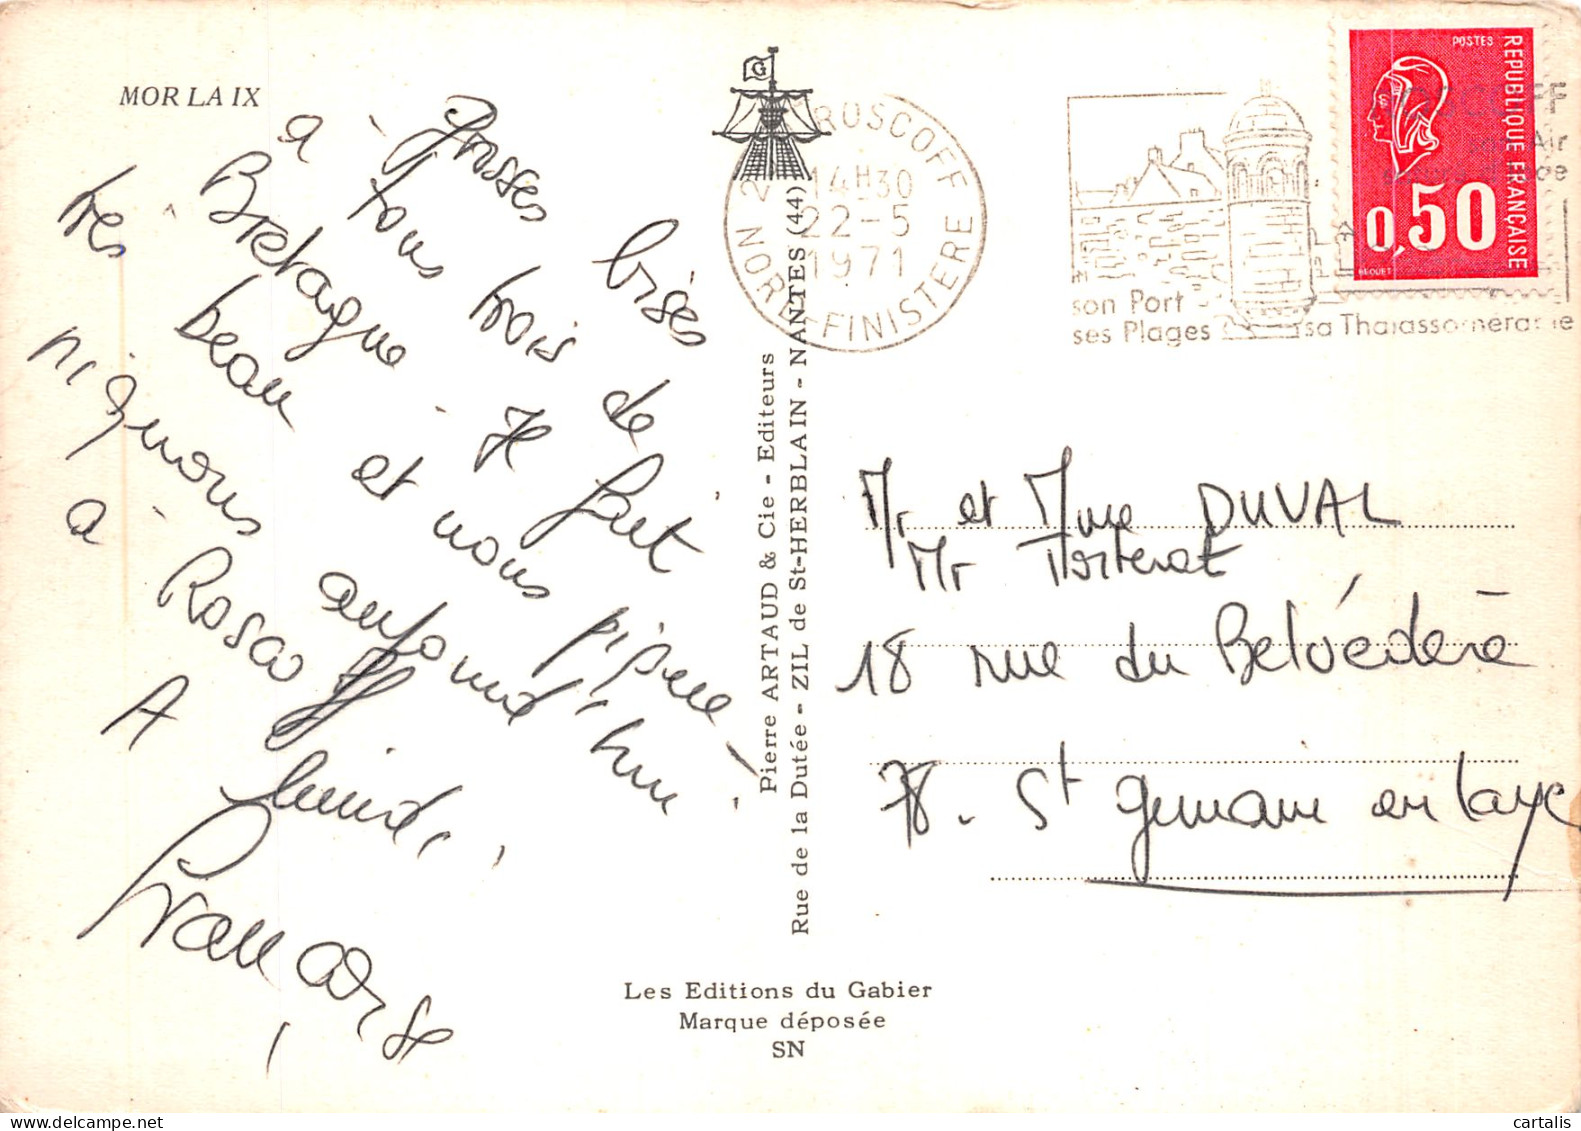 MORLAIX
Grosses bises
à tous trois de
Bretagne. Il fait
très beau et nous pique-
niquons aujourd'hui
à Roscoff
A lundi,
Françoise
G
Pierre ARTAUD & Cie - Editeurs
Rue de la Dutée - ZIL de St-HERBLAIN - NANTES (44)
Les Editions du Gabier
Marque déposée
SN
ROSCOFF
14H30
22-5
1971
NORD-FINISTERE
son Port
ses Plages
sa Thalassothérapie
POSTES
REPUBLIQUE FRANÇAISE
0,50
BEQUET
Mr et Mme DUVAL
Mr
18 rue du Belvédère
78. St Germain en Laye
cartalis